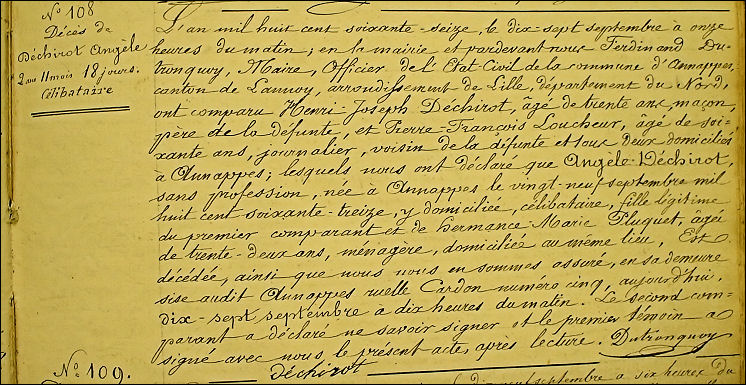 N° 108
Décès de
Déchirot Angèle
2 ans 11 mois 18 jours.
Célibataire
L'an mil huit cent soixante-seize, le dix sept septembre à onze
heures du matin; en la mairie et pardevant nous Ferdinand Du-
tronquoy, Maire, Officier de l'Etat Civil de la commune d'Annappes,
canton de Lannoy, arrondissement de Lille, département du Nord,
ont comparu Henri-Joseph Déchirot, âgé de trente ans, maçon,
père de la défunte, et Pierre-François Loucheur, âgé de soi-
xante ans, journalier, voisin de la défunte et tous deux domiciliés
à Annappes; lesquels nous ont déclaré que Angèle Déchirot,
sans profession, née à Annappes le vingt-neuf septembre mil
huit cent soixante-treize, y domiciliée, célibataire, fille légitime
du premier comparant et de Hermance Marie Pluquet, âgée
de trente-deux ans, ménagère, domiciliée au même lieu, Est
décédée, ainsi que nous nous en sommes assuré, en sa demeure
sise audit Annappes ruelle Cardon numéro cinq, aujourd'hui,
dix-sept septembre à dix heures du matin. Le second com-
parant a déclaré ne savoir signer et le premier témoin a
signé avec nous, le présent acte, après lecture. Dutronquoy
Déchirot
N° 109.
septembre à six heures du